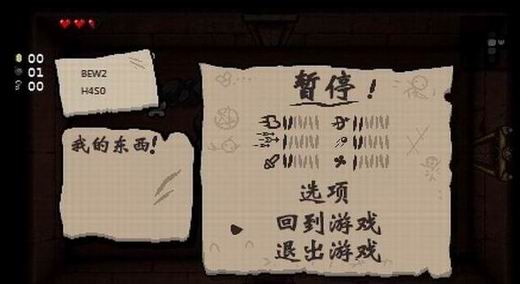 00
01
00
BEW2
H4S0
我的东西!
暂停!
选项
回到游戏
退出游戏